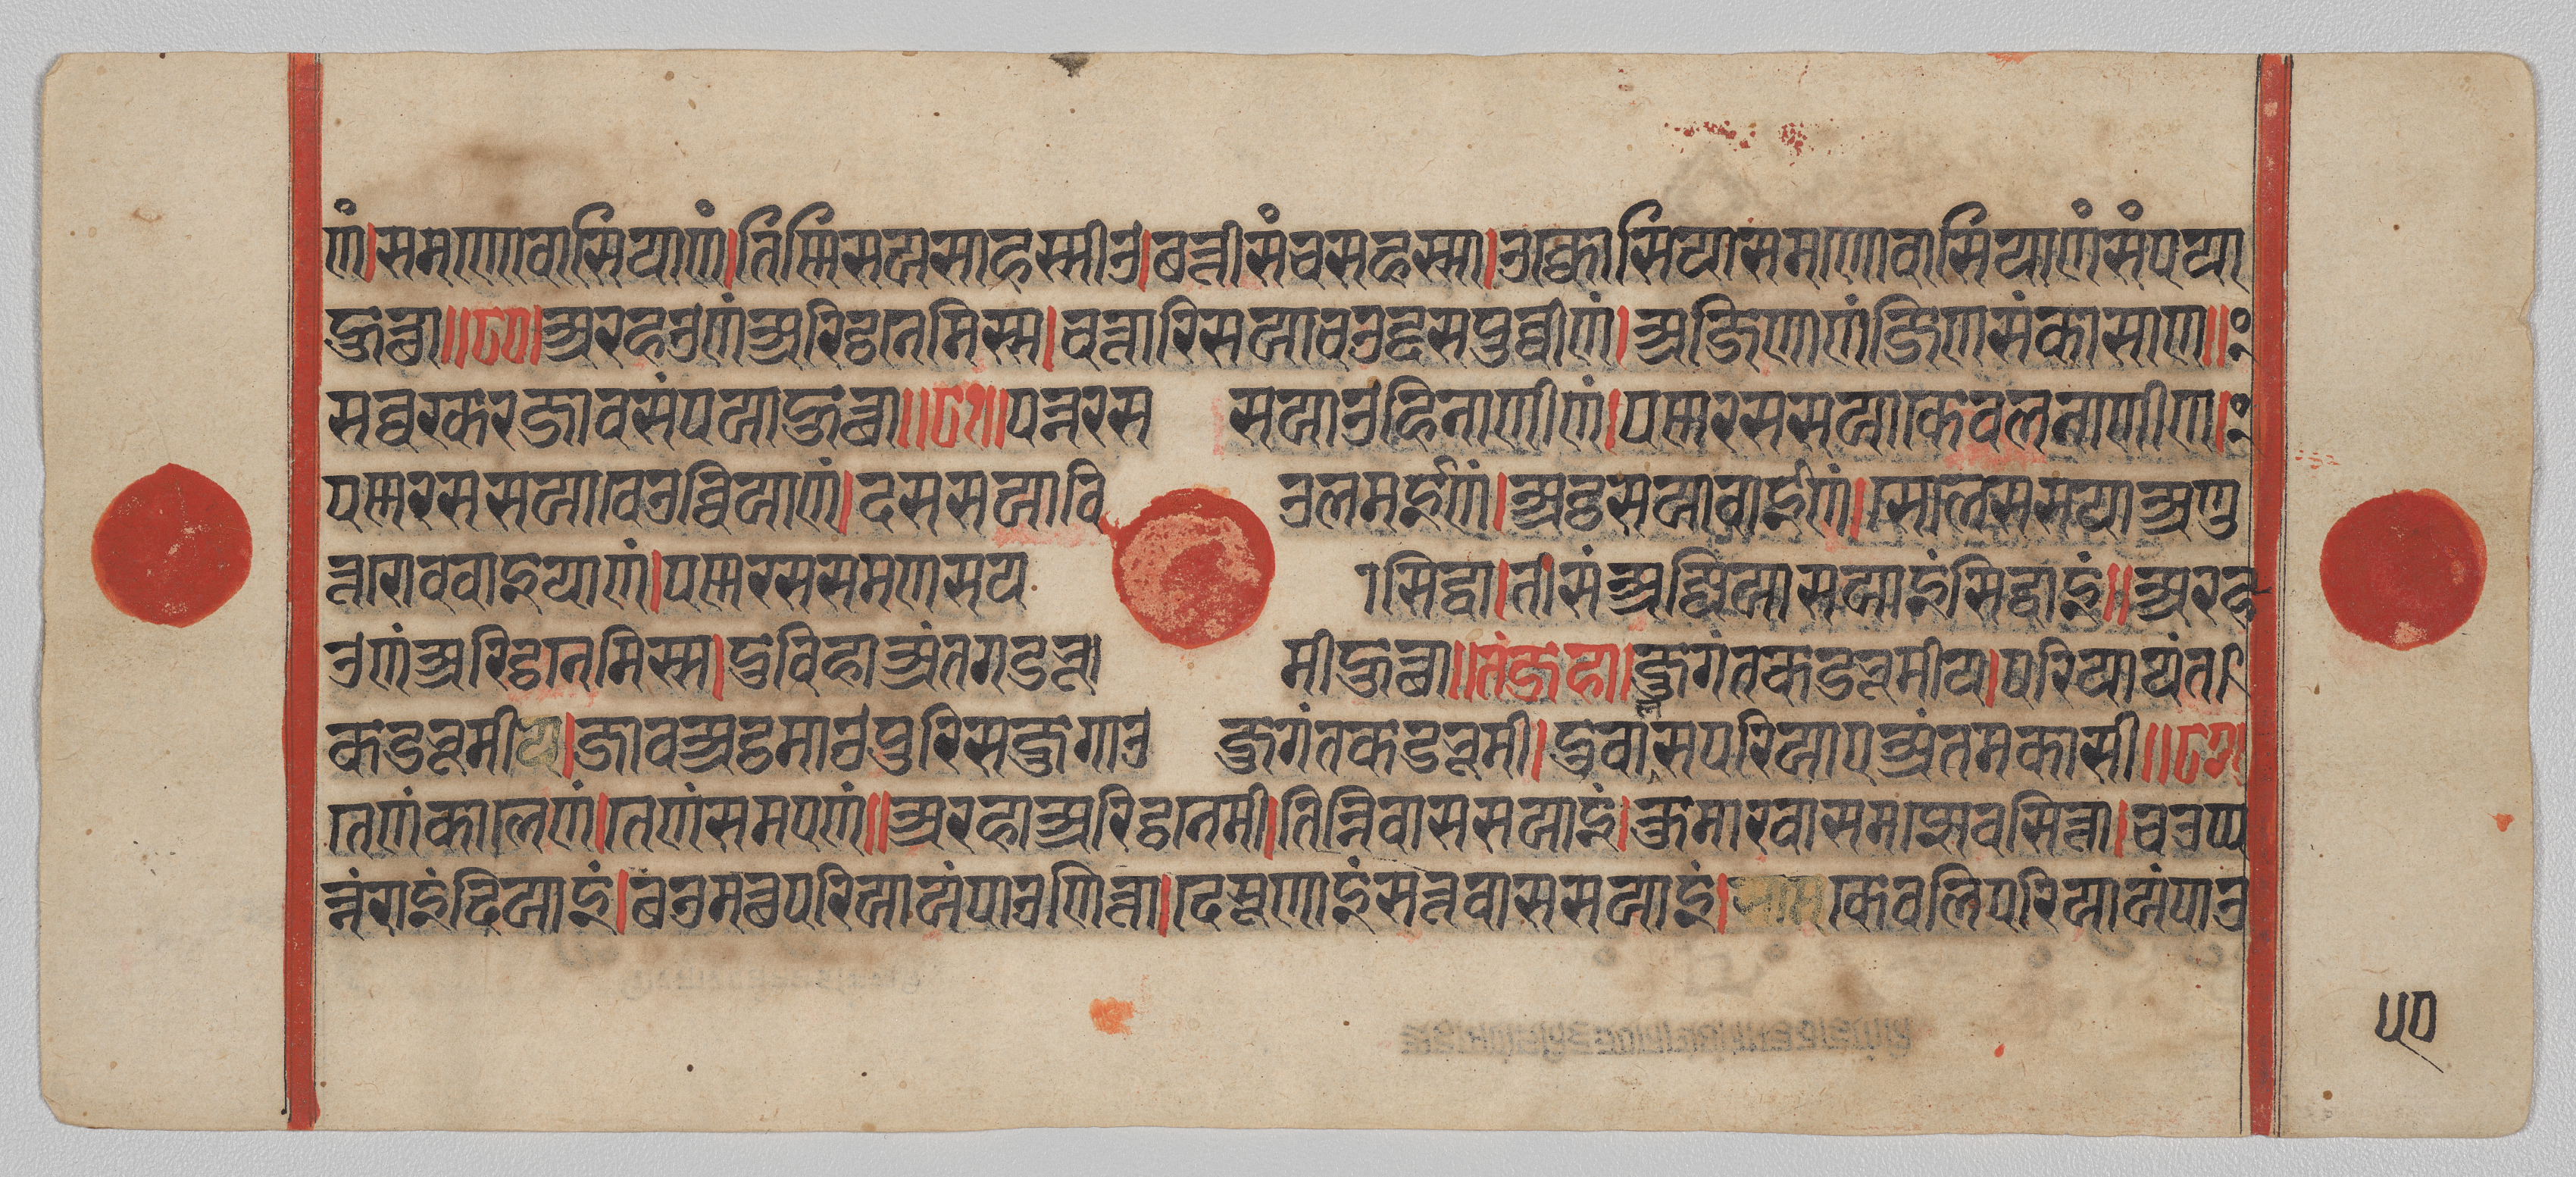 णं।समणोवासियाणं।तिण्णिसयसाहस्सीउ।छत्तीसंचसहस्सा।उक्कोसियासमणोवासियाणंसंपया
हुत्था॥८०॥अरहउणंअरिट्ठनेमिस्स।चत्तारिसयाचउद्दसपुव्वीणं।अजिणाणंजिणसंकासाण॥
सव्वक्खरजावसंपयाहुत्था॥८१॥पन्नरस सयाउहिनाणीणं।पण्णरससयाकेवलनाणीण।
पण्णरससयावेउव्वियाणं।दससयावि उलमईणं।अट्ठसयावाईणं।सोलससयाअणु
त्तरोववाइयाणं।पण्णरससमणसय ासिद्धा।तीसंअज्जियासयाइंसिद्धाइं॥अरह
उणंअरिट्ठनेमिस्स।दुविहाअंतगडभू मीहुत्था॥तंजहा।जुगंतकडभूमीय।परियायंत
कडभूमीय।जावअट्ठमाउपुरिसजुगाउ जुगंतकडभूमी।दुवासपरियाएअंतमकासी॥८२
तेणंकालेणं।तेणंसमएणं॥अरहाअरिट्ठनेमी।तिन्निवाससयाइं।कुमारवासमज्झेवसित्ता।चउप्प
न्नंराइंदियाइं।छउमत्थपरियायंपाउणित्ता।देसूणाइंसत्तवाससयाइं।केवलिपरियायंपाउ
५०